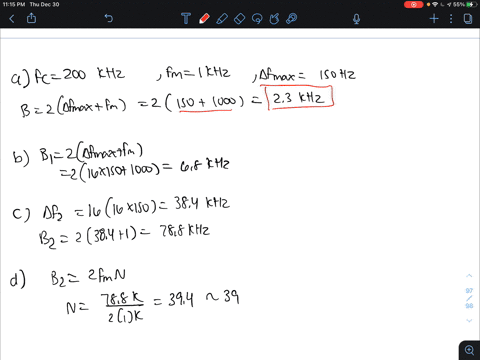 11:15 PM Thu Dec 30
a) fc = 200 kHz , fm = 1 kHz , Δfmax = 150 Hz
B = 2(Δfmax + fm) = 2(150 + 1000) = 2.3 kHz
b) B₁ = 2(Δfmax + fm)
= 2(16×150 + 1000) = 6.8 kHz
c) Δf₂ = 16(16×150) = 38.4 kHz
B₂ = 2(38.4 + 1) = 78.8 kHz
d) B₂ = 2fmN
N = 78.8 k / 2(1)k = 39.4 ~ 39
97
98